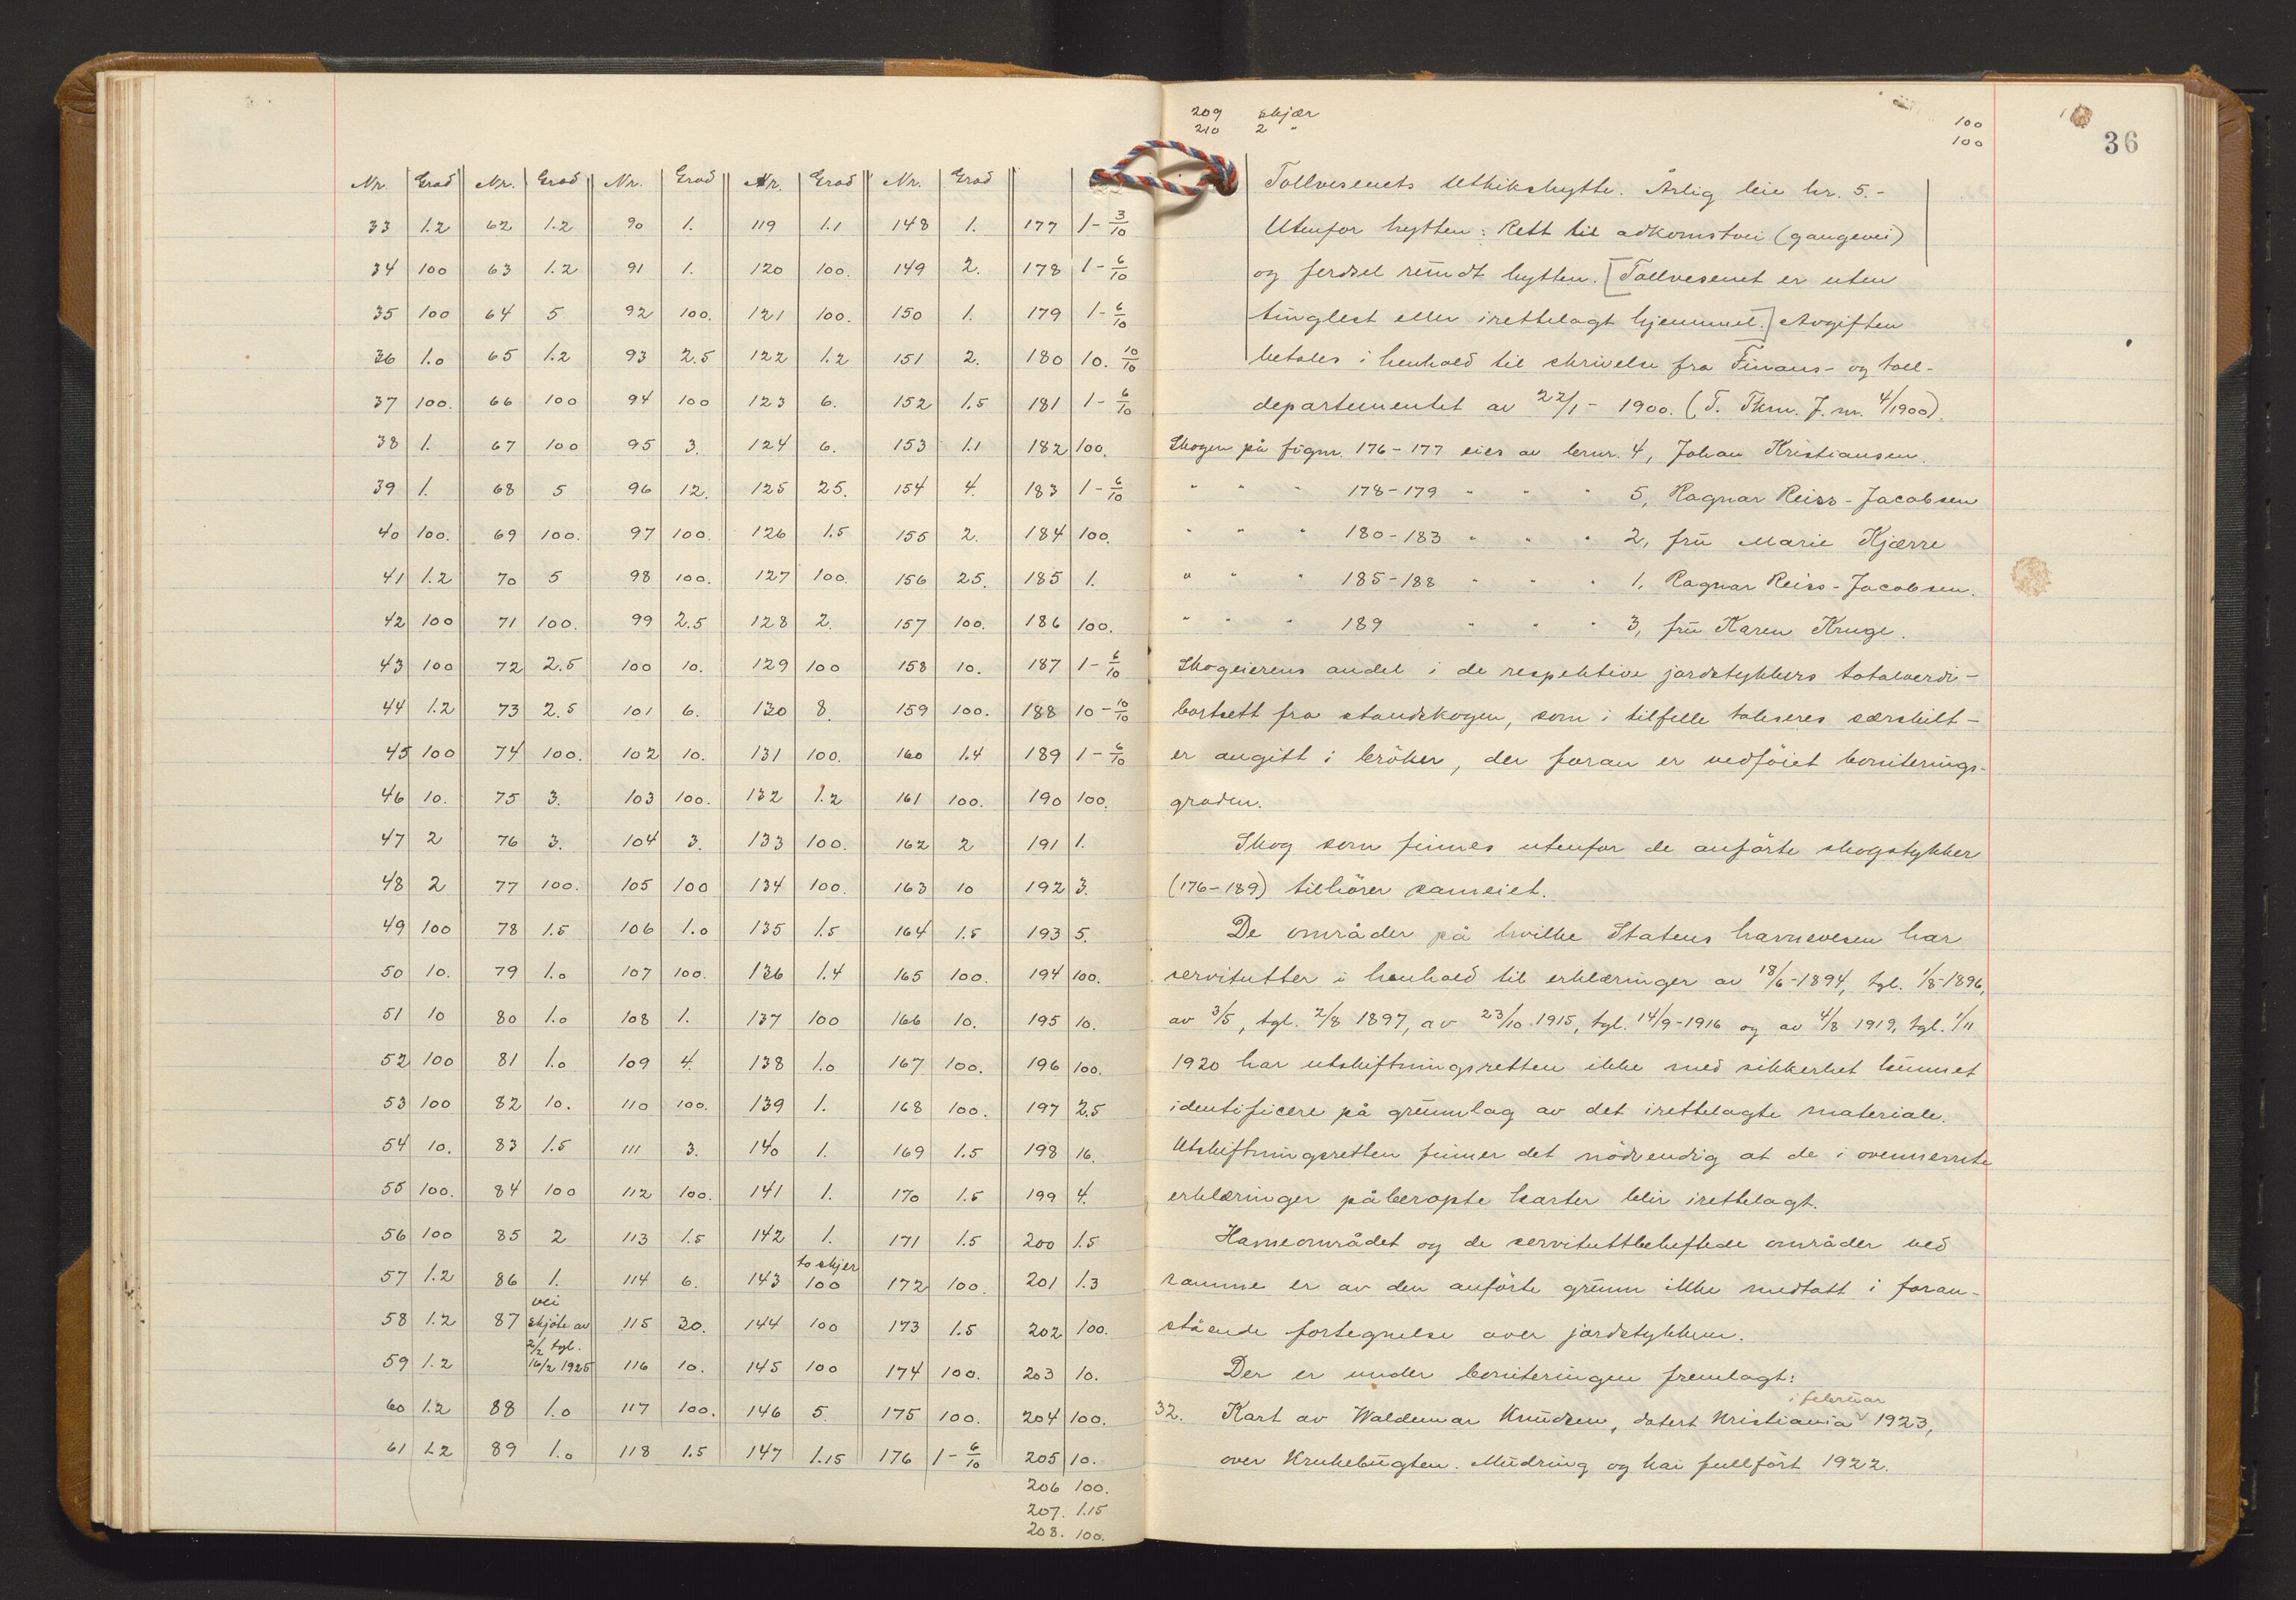 Nr. Grad Nr. Grad Nr. Grad Nr. Grad Nr. Grad
33 1.2 62 1.2 90 1. 119 1.1 148 1. 177 1-3/10
34 100 63 1.2 91 1. 120 100. 149 2. 178 1-6/10
35 100 64 5 92 100. 121 100. 150 1. 179 1-6/10
36 1.0 65 1.2 93 2.5 122 1.2 151 2. 180 10. 10/10
37 100. 66 100 94 100 123 6. 152 1.5 181 1-6/10
38 1. 67 100 95 3. 124 6. 153 1.1 182 100.
39 1. 68 5 96 12. 125 25. 154 4. 183 1-6/10
40 100. 69 100. 97 100. 126 1.5 155 2. 184 100.
41 1.2 70 5 98 100. 127 100. 156 25. 185 1.
42 100 71 100. 99 2.5 128 2. 157 100. 186 100.
43 100 72 2.5 100 10. 129 100 158 10. 187 1-6/10
44 1.2 73 2.5 101 6. 130 8. 159 100. 188 10-10/10
45 100 74 100. 102 10. 131 100. 160 1.4 189 1-6/10
46 10. 75 3. 103 100. 132 1.2 161 100. 190 100.
47 2 76 3. 104 3. 133 100. 162 2 191 1.
48 2 77 100. 105 100 134 100. 163 10 192 3.
49 100 78 1.5 106 1.0 135 1.5 164 1.5 193 5.
50 10. 79 1.0 107 100. 136 1.4 165 100. 194 100.
51 10 80 1.0 108 1. 137 100 166 10. 195 10.
52 100 81 1.0 109 4. 138 1.0 167 100. 196 100.
53 100 82 10. 110 100. 139 1. 168 100. 197 2.5
54 10. 83 1.5 111 3. 140 1. 169 1.5 198 16.
55 100. 84 100 112 100. 141 1. 170 1.5 199 4.
56 100 85 2 113 1.5 142 1. 171 1.5 200 1.5
57 1.2 86 1. 114 6. 143 to skjer 100 172 100. 201 1.3
58 1.2 87 vei skjøte av 115 30. 144 100 173 1.5 202 100.
59 1.2 2/2 tgl. 16/2 1925 116 10. 145 100 174 100. 203 10.
60 1.2 88 1.0 117 100. 146 5. 175 100. 204 100.
61 1.2 89 1.0 118 1.5 147 1.15 176 1-6/10 205 10.
206 100.
207. 1.15
208. 100.
209 skjær 100
210 2 " 100
36
Tollvesenets utkikshytte. Årlig leie kr. 5.-
Utenfor hytten: Rett til adkomstvei (gangevei)
og ferdsel rundt hytten. [Tollvesenet er uten
tinglest eller irettelagt hjemmel.] Avgiften
betales i henhold til skrivelse fra Finans- og toll-
departementet av 22/1 - 1900. (T. Tkm. J. nr. 4/1900).
Skogen på figur. 176-177 eies av brnr. 4, Johan Kristiansen.
" " " 178-179 " " " 5, Ragnar Reiss-Jacobsen
" " " 180-183 " " " 2, fru Marie Kjærre
" " " 185-188 " " " 1, Ragnar Reiss-Jacobsen.
" " " 189 " " " 3, fru Karen Kruge.
Skogeierens andel i de respektive jordstykkers totalverdi -
bortsett fra standskogen, som i tilfelle takseres særskilt -
er angitt i brøker, der foran er vedføiet boniterings-
graden.
Skog som finnes utenfor de anførte skogstykker
(176-189) tilhører sameiet.
De områder på hvilke Statens havnevesen har
servitutter i henhold til erklæringer av 18/6-1894, tgl. 1/8-1896,
av 3/5, tgl. 2/8 1897, av 23/10 1915, tgl. 14/9-1916 og av 4/8 1919, tgl. 1/11
1920 har utskiftningsretten ikke med sikkerhet kunnet
identificere på grunnlag av det irettelagte materiale.
Utskiftningsretten finner det nødvendig at de i ovennevnte
erklæringer påberopte karter blir irettelagt.
Havneområdet og de servituttbeheftede områder ved
samme er av den anførte grunn ikke medtatt i foran-
stående fortegnelse over jordstykkene.
Der er under boniteringen fremlagt:
i februar
32. Kart av Waldemar Knudsen, datert Kristiania 1923,
over Krukebugten. Mudring og kai fullført 1922.